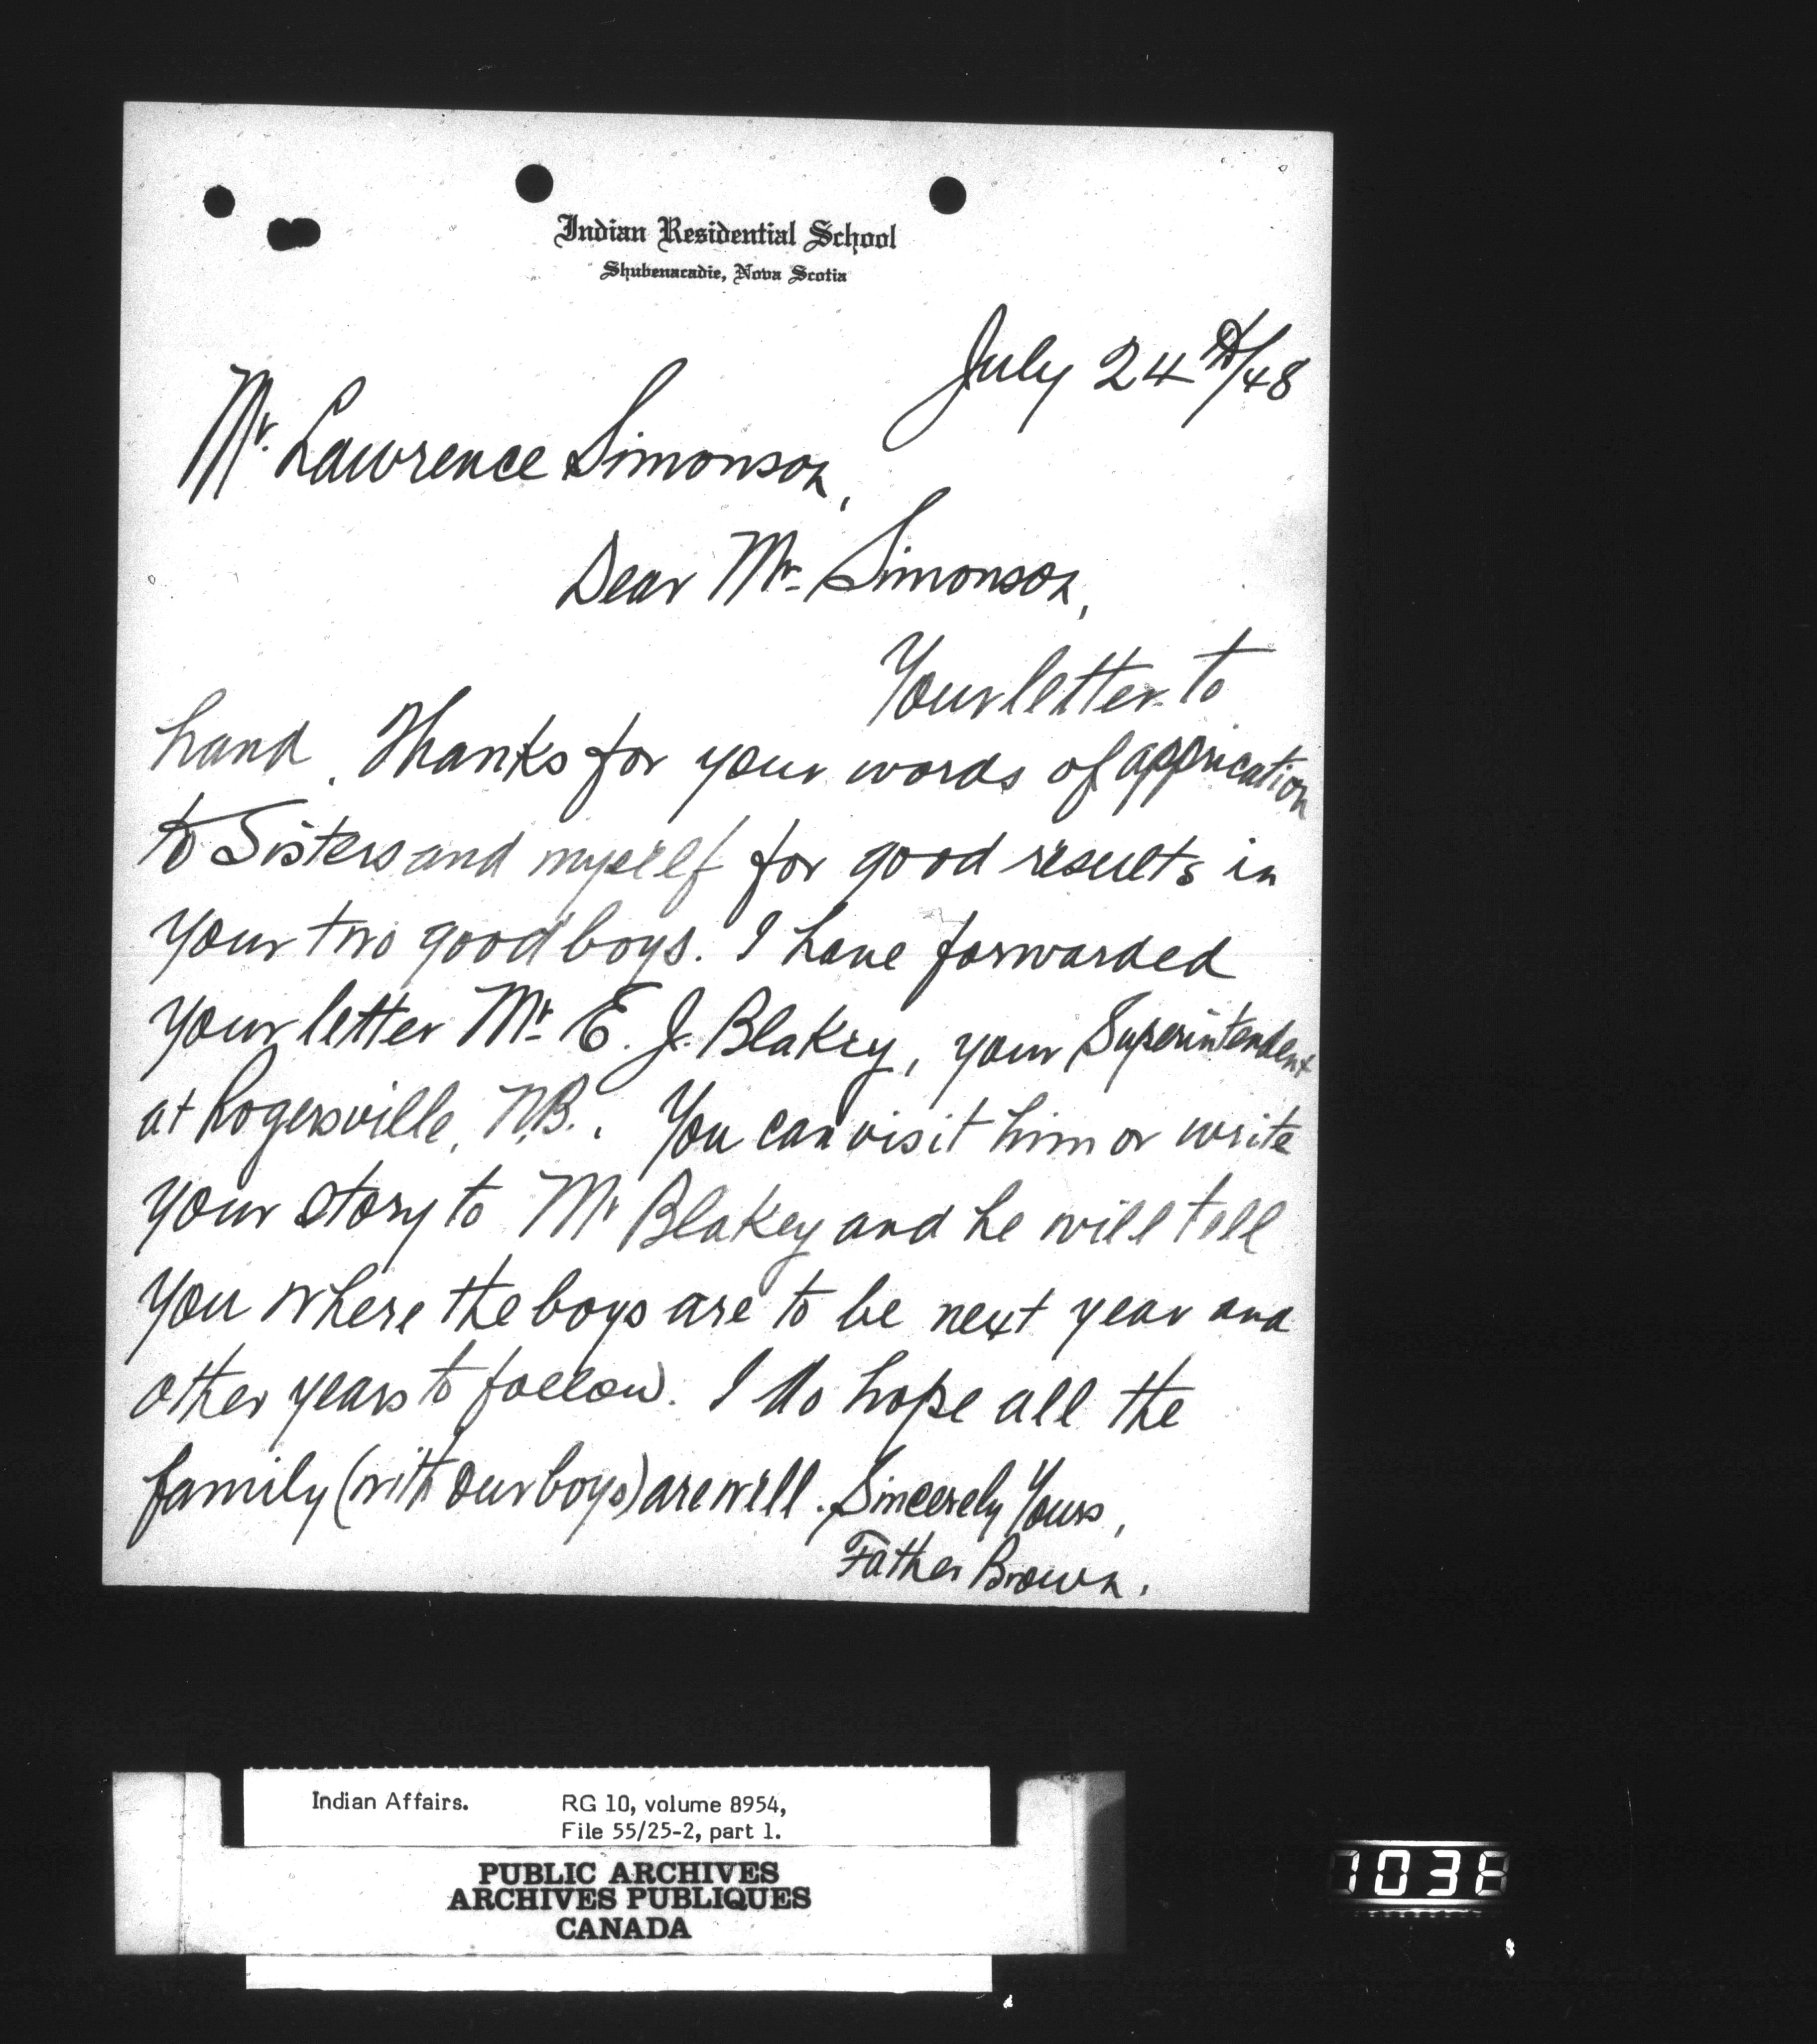 Indian Residential School
Shubenacadie, Nova Scotia
July 24th/48
Mr. Lawrence Simonson,
Dear Mr. Simonson,
Your letter to
hand. Thanks for your words of apprication
to Sisters and myself for good results in
your two good boys. I have forwarded
your letter Mr. E. J. Blakey, your Superintendent
at Rogersville, N.B.. You can visit him or write
your story to Mr Blakey and he will tell
you where the boys are to be next year and
other years to follow. I do hope all the
family (with our boys) are well. Sincerely Yours,
Father Brown.
Indian Affairs. RG 10, volume 8954,
File 55/25-2, part 1.
PUBLIC ARCHIVES
ARCHIVES PUBLIQUES
CANADA